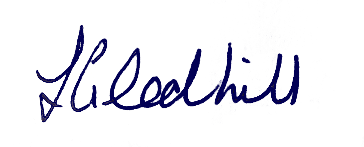 J Gledhill